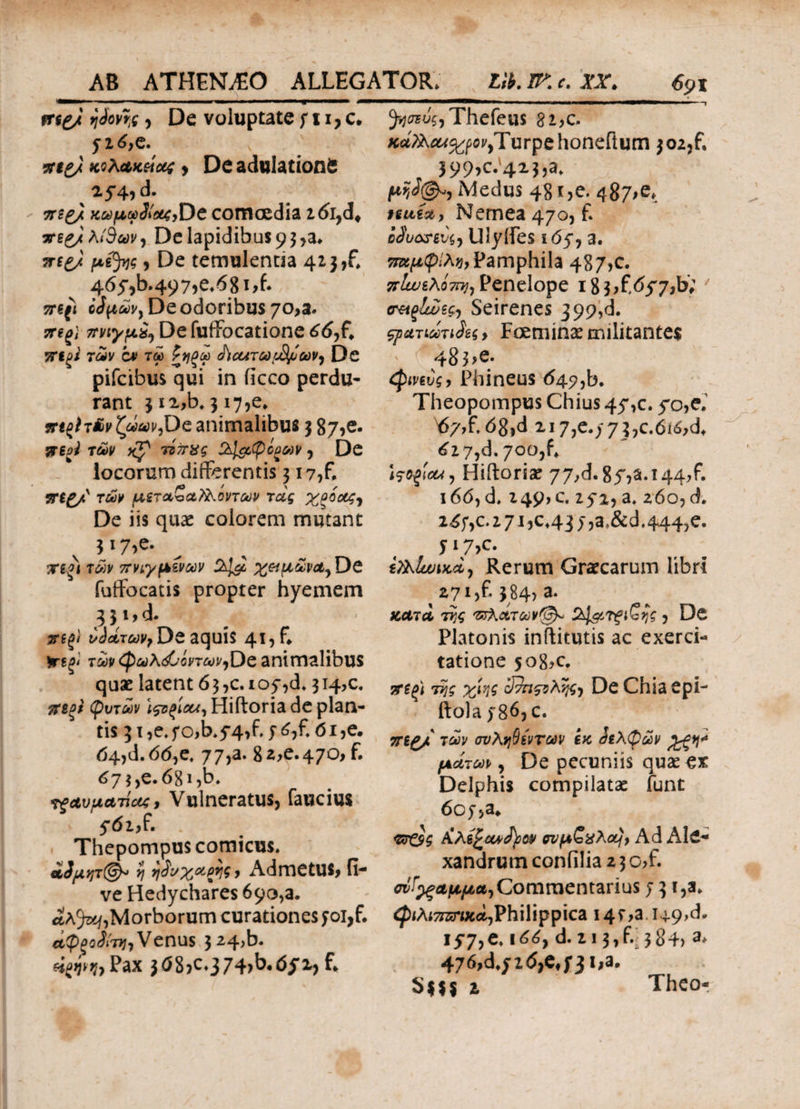 AB ATHENÆO ALLEGATOR. Lib. IV. c. XX. 691
περὶ ἡδονῆς, De voluptate 511,c.
516,e.
περὶ κολακείας, De adulatione
254,d.
περὶ κωμῳδίας, De comœdia 261,d.
περὶ λίθων, De lapidibus 93,a.
περὶ μέθης, De temulentia 423,f.
465,b.497,e.681,f.
περὶ ὀδμῶν, De odoribus 70,a.
περὶ πνιγμοῦ, De suffocatione 66,f.
περὶ τῶν ἐν τῷ ξηρῷ διαιτωμένων, De
piscibus qui in sicco perdu-
rant 312,b. 317,e.
περὶ τῶν ζώων, De animalibus 387,e.
περὶ τῶν κατὰ τόπους διαφόρων, De
locorum differentis 317,f.
περὶ τῶν μεταβαλλόντων τὰς χρόας,
De iis quæ colorem mutant
317,e.
περὶ τῶν πνιγμένων διὰ χειμῶνα, De
suffocatis propter hyemem
331,d.
περὶ ὑδάτων, De aquis 41,f.
περὶ τῶν φωλευόντων, De animalibus
quæ latent 63,c.105,d.314,c.
περὶ φυτῶν ἱστορίαι, Historia de plan-
tis 31,e.50,b.54,f.56,f.61,e.
64,d.66,e. 77,a. 82,e.470, f.
673,e.681,b.
τραυματίας, Vulneratus, faucius
562,f.
Thepompus comicus.
ἄδμητος ἢ ἡδυχάρης, Admetus, si-
ve Hedychares 690,a.
ἄλθαι, Morborum curationes 501,f.
ἀφροδίτη, Venus 324,b.
εἰρήνη, Pax 368,c.374,b.652, f.
θησεὺς, Thefeus 82,c.
κάλλαισχρον, Turpe honestum 302,f.
399,c. 423,a.
μῆδος, Medus 481,e. 487,e.
νεμέα, Nemea 470, f.
ὀδυσσεὺς, Ulysses 165, a.
παμφίλη, Pamphila 487,c.
πηνελόπη, Penelope 183,f.657,b;
σειρῆνες, Seirenes 399,d.
στρατιώτιδες, Fœminæ militantes
483,e.
φινεὺς, Phineus 649,b.
Theopompus Chius 45,c. 50,e.
67,f. 68,d 217,e.573,c.616,d.
627,d.700,f.
ἱστορίαι, Historiæ 77,d.85,a.144,f.
166, d. 249, c. 252, a. 260, d.
265,c.271,c.435,a,&d.444,e.
517,c.
ἑλληνικὰ, Rerum Græcarum libri
271,f. 384, a.
κατὰ τῆς πλάτωνος διατριβῆς, De
Platonis institutis ac exerci-
tatione 508,c.
περὶ τῆς χίης ἐπιστολῆς, De Chia epi-
stola 586, c.
περὶ τῶν συληθέντων ἐκ δελφῶν χρη-
μάτων, De pecuniis quæ ex
Delphis compilatæ sunt
605,a.
πρὸς Ἀλέξανδρον συμβουλαὶ, Ad Ale-
xandrum consilia 230,f.
σύγγραμμα, Commentarius 531,a.
φιλιππικὰ, Philippica 145,a. 149,d.
157, e. 166, d. 213, f. 384, a.
476,d.526,e,531,a.
Ssss 2 Theo-